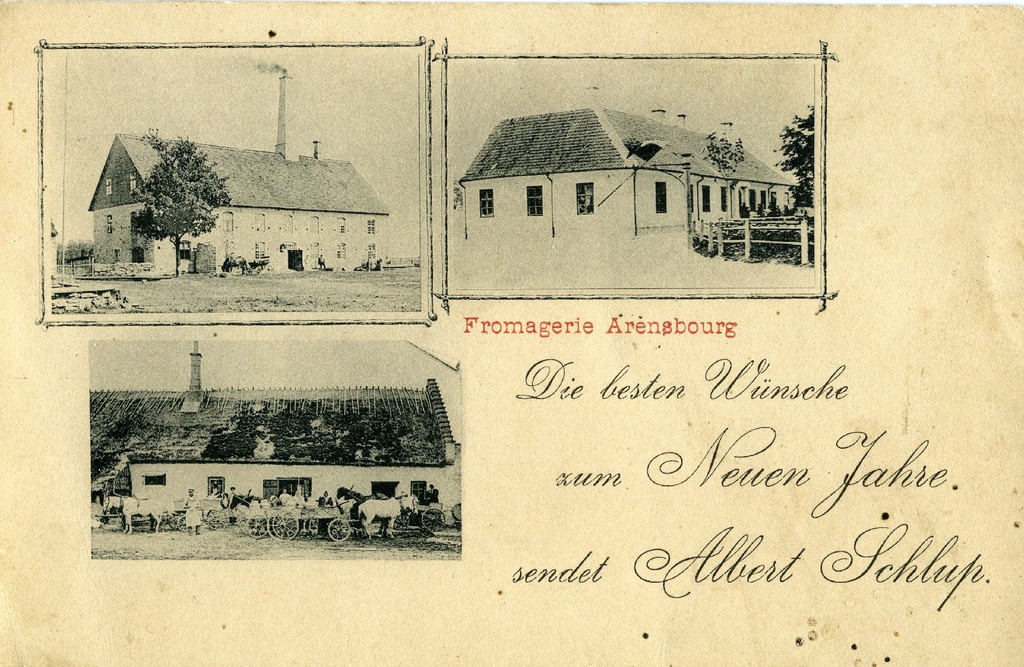 Fromagerie Arensbourg
Die besten Wünsche
zum Neuen Jahre
sendet Albert Schlup.